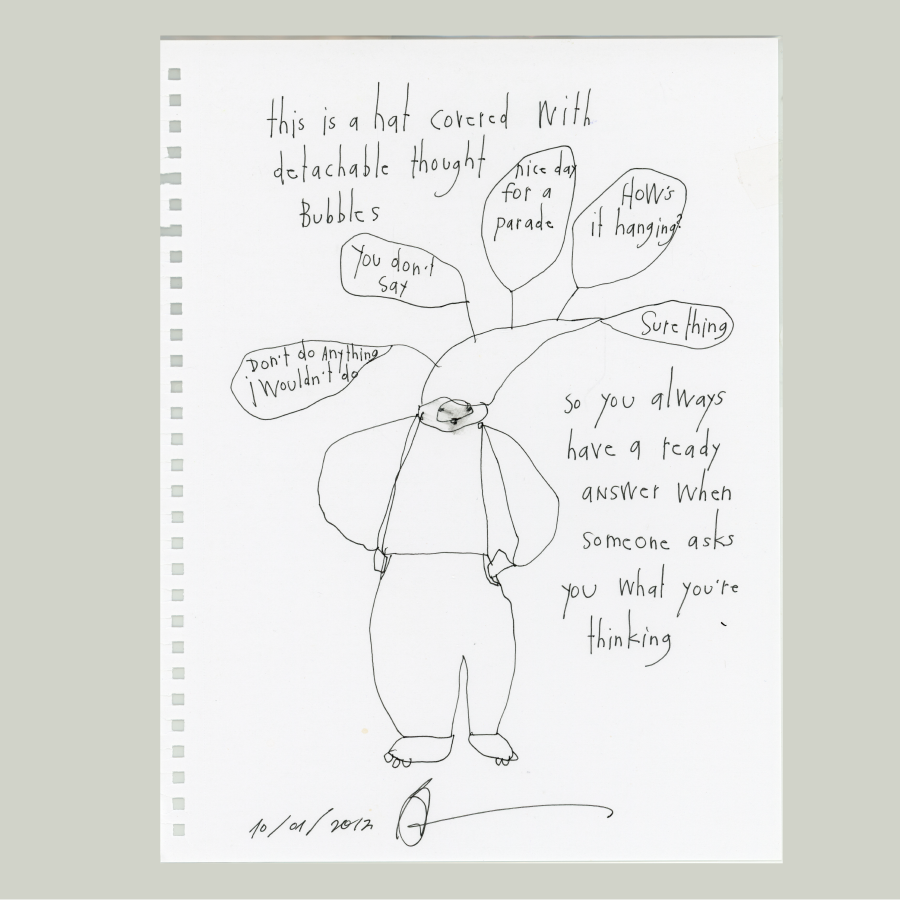 this is a hat covered with
detachable thought
Bubbles
nice day
for a
parade
How's
it hanging?
You don't
say
Sure thing
Don't do Anything
i Wouldn't do
so you always
have a ready
answer when
someone asks
you what you're
thinking
10/01/2012